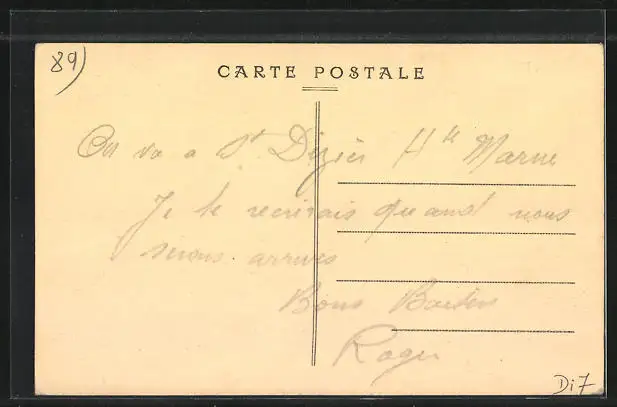 89)
CARTE POSTALE
On va a St Dizier Hte Marne
Je te recrirais quand nous
serons arrives
Bons Baisers
Roger
Di7